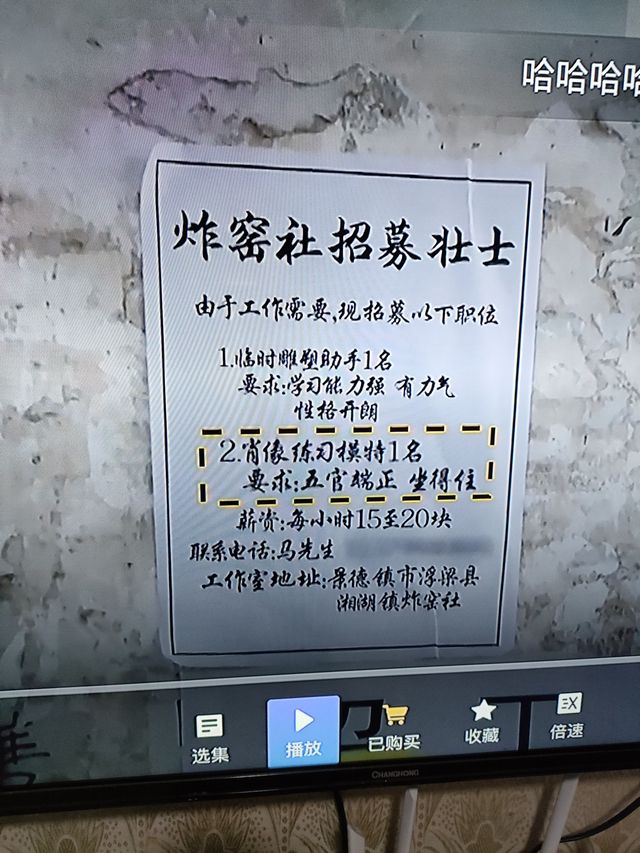 哈哈哈哈
炸窑社招募壮士
由于工作需要,现招募以下职位
1.临时雕塑助手1名
要求:学习能力强 有力气
性格开朗
2.肖像练习模特1名
要求:五官端正 坐得住
薪资:每小时15至20块
联系电话:马先生
工作室地址:景德镇市浮梁县
湘湖镇炸窑社
选集
播放
已购买
收藏
倍速
CHANGHONG